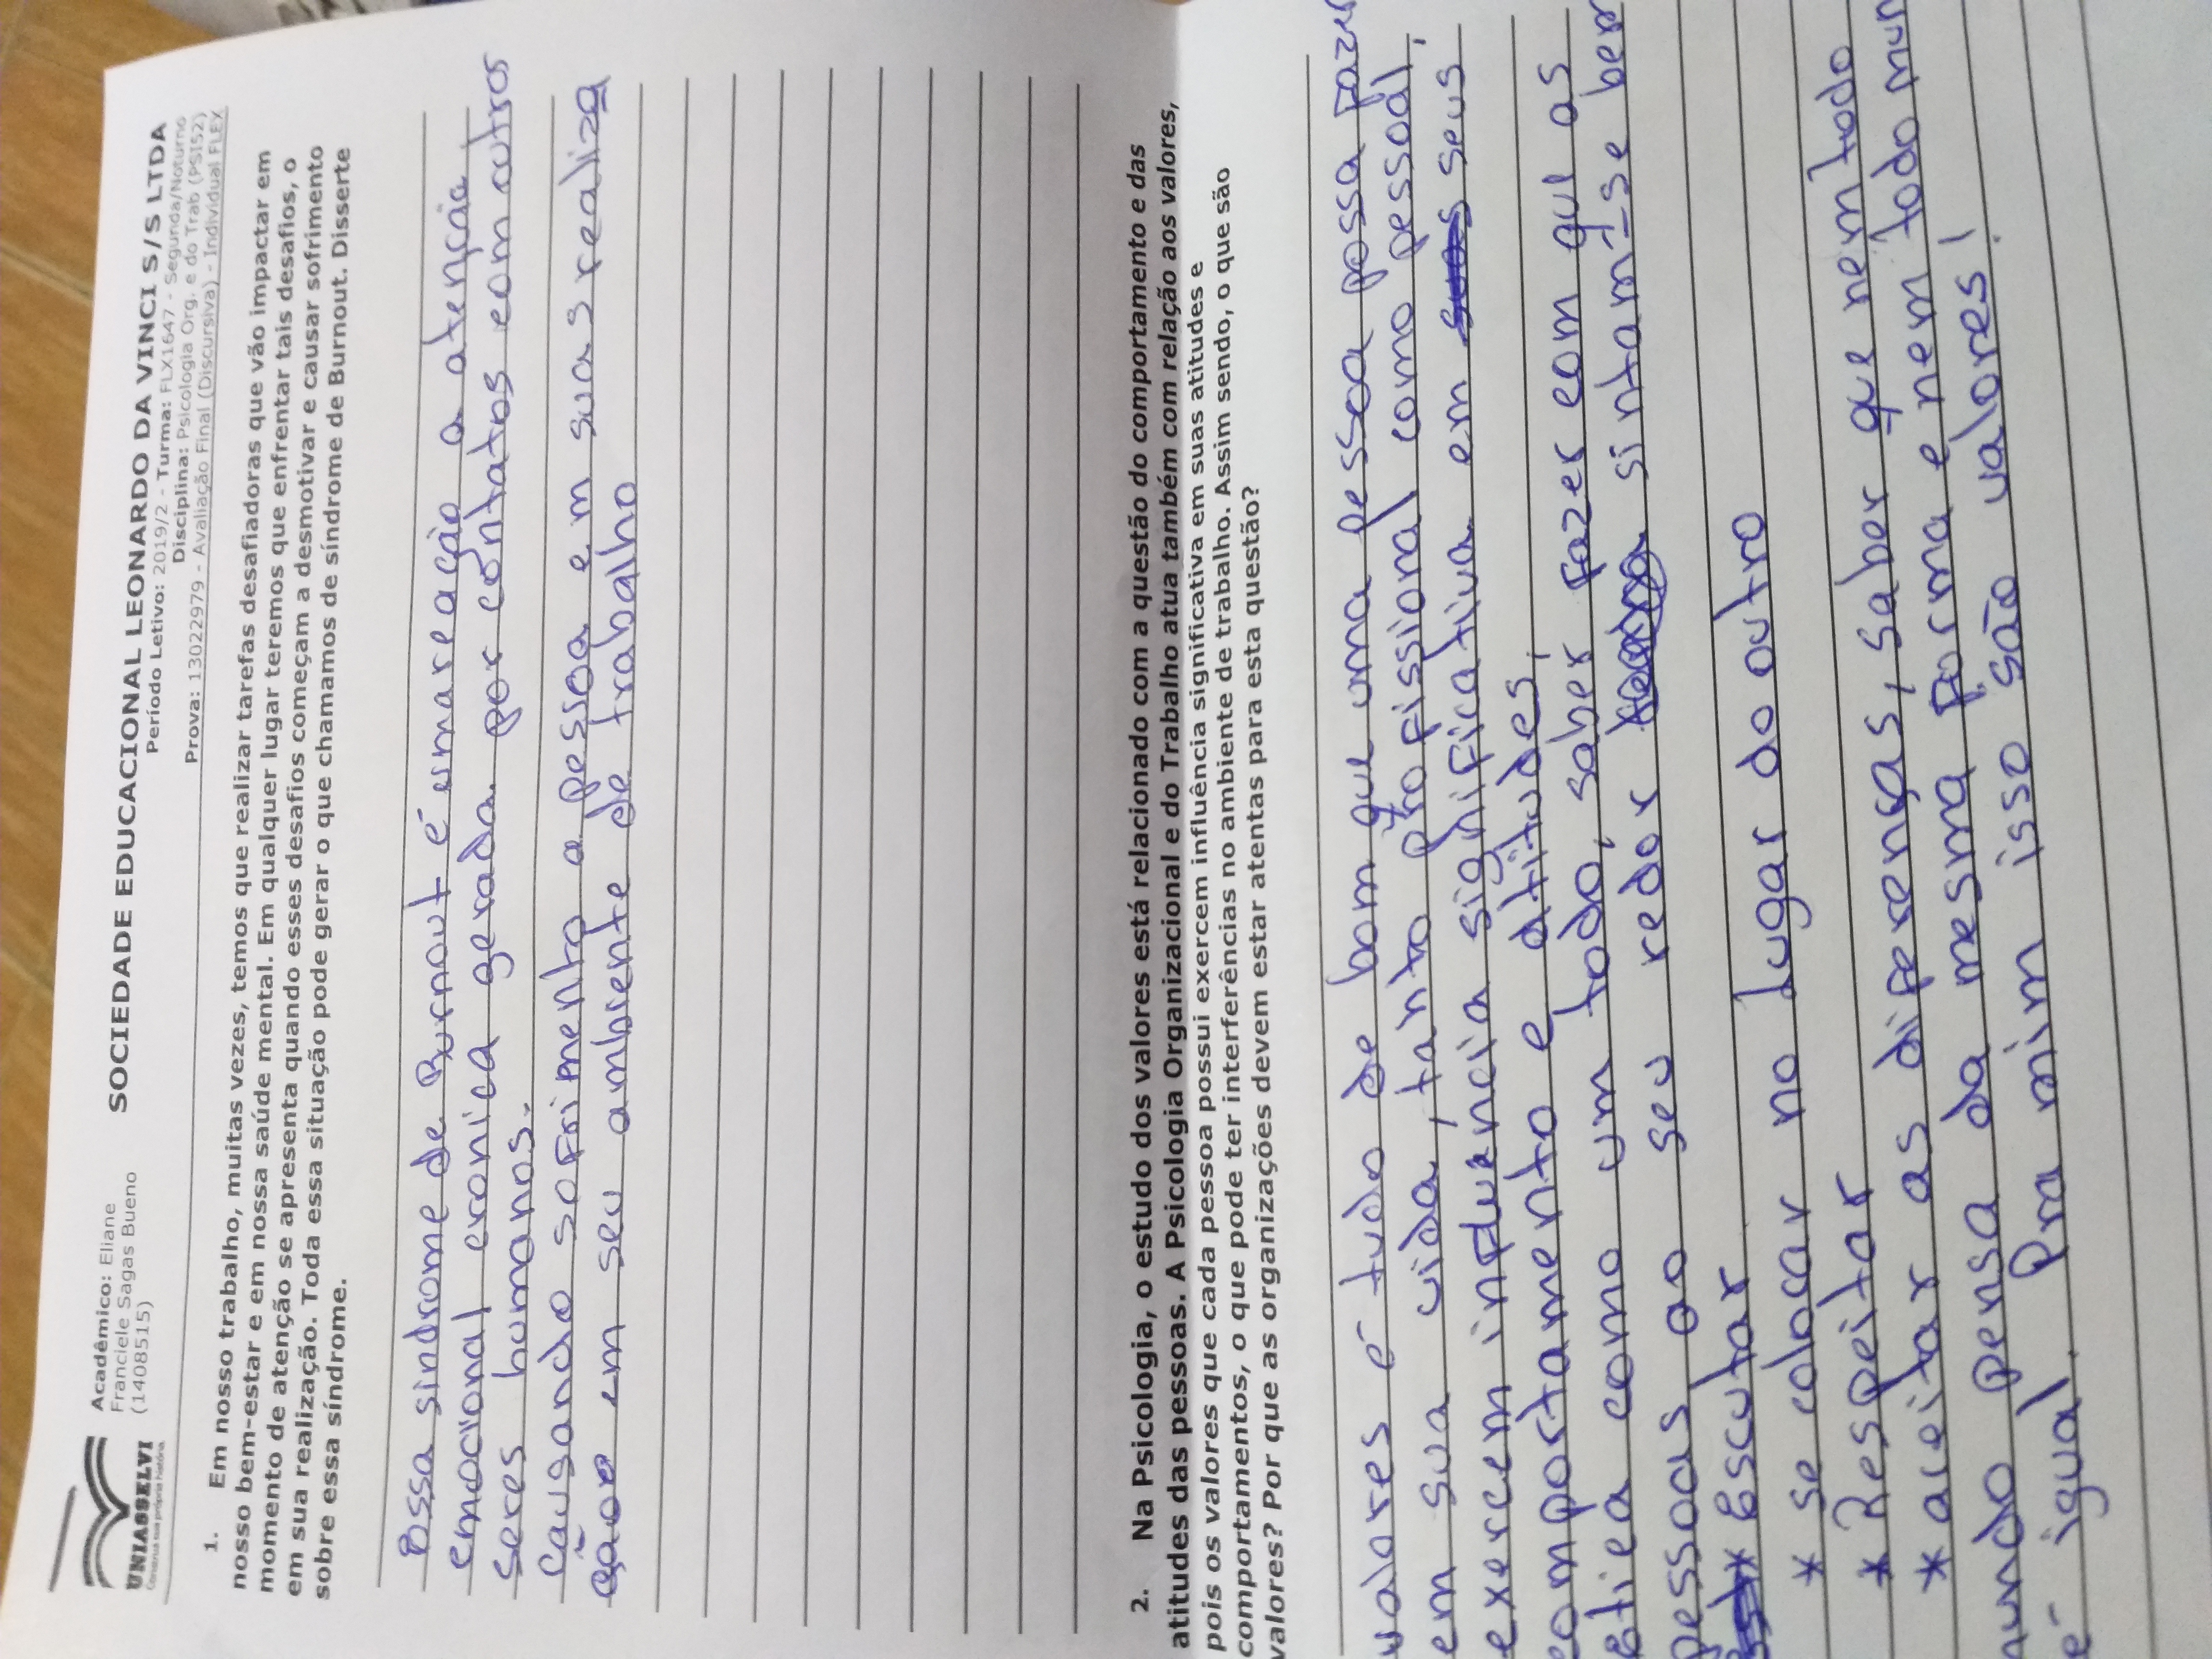 UNIASSELVI
Acadêmico: Eliane
Franciele Sagas Bueno
(1408515)
SOCIEDADE EDUCACIONAL LEONARDO DA VINCI S/S LTDA
Período Letivo: 2019/2 - Turma: FLX1647 - Segunda/Noturno
Disciplina: Psicologia Org. e do Trab (PSI52)
Prova: 13022979 - Avaliação Final (Discursiva) - Individual FLEX
1. Em nosso trabalho, muitas vezes, temos que realizar tarefas desafiadoras que vão impactar em
nosso bem-estar e em nossa saúde mental. Em qualquer lugar teremos que enfrentar tais desafios, o
momento de atenção se apresenta quando esses desafios começam a desmotivar e causar sofrimento
em sua realização. Toda essa situação pode gerar o que chamamos de síndrome de Burnout. Disserte
sobre essa síndrome.
Essa sindrome de Burnout é uma reação a atenção
emocional cronica gerada por contatos com outros
seres humanos.
Causando sofrimento a pessoa e em suas realiza
ção em seu ambiente de trabalho
2. Na Psicologia, o estudo dos valores está relacionado com a questão do comportamento e das
atitudes das pessoas. A Psicologia Organizacional e do Trabalho atua também com relação aos valores,
pois os valores que cada pessoa possui exercem influência significativa em suas atitudes e
comportamentos, o que pode ter interferências no ambiente de trabalho. Assim sendo, o que são
valores? Por que as organizações devem estar atentas para esta questão?
valores é tudo de bom que uma pessoa possa fazer
em sua vida, tanto profissional como pessoal,
exercem influência significativa em seus
comportamento e atitudes,
Etica como um todo, saber fazer com que as
pessoas ao seu redor sintam-se bem
* Escutar
* se colocar no Lugar do outro
* Respeitar
* aceitar as diferenças, saber que nem todo
mundo pensa da mesma forma e nem todo mun
é igual. Pra mim isso são valores!